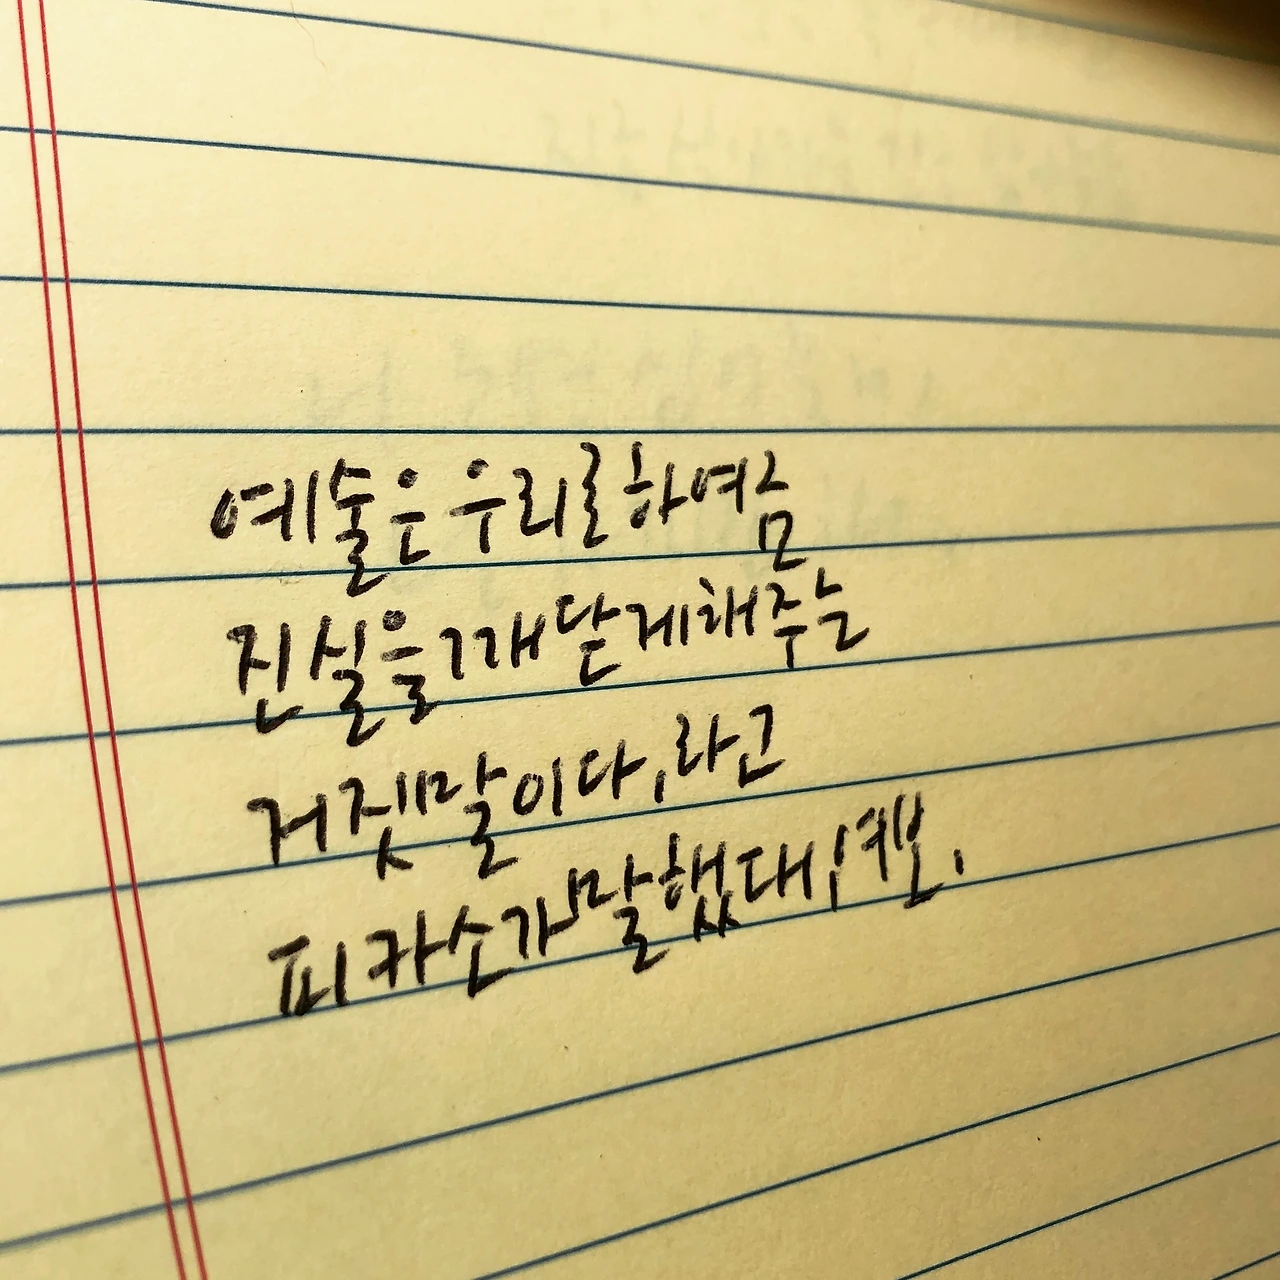 예술은 우리로 하여금
진실을 깨닫게 해주는
거짓말이다, 라고
피카소가 말했대, 여보.